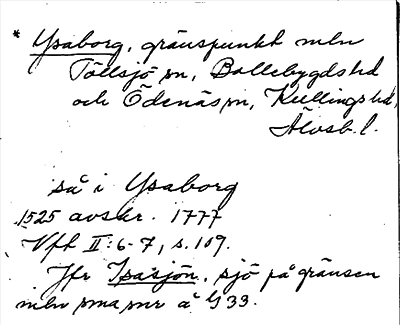 * Ysaborg, gränspunkt mln
Töllsjö sn, Bollebygds hd
och Ödenäs sn, Kullings hd,
Älvsb. l.
så i Ysaborg
1525 avskr. 1777
Vft II:6-7, s. 109.
Jfr Isasjön, sjö på gränsen
mln sma snr å G 33.